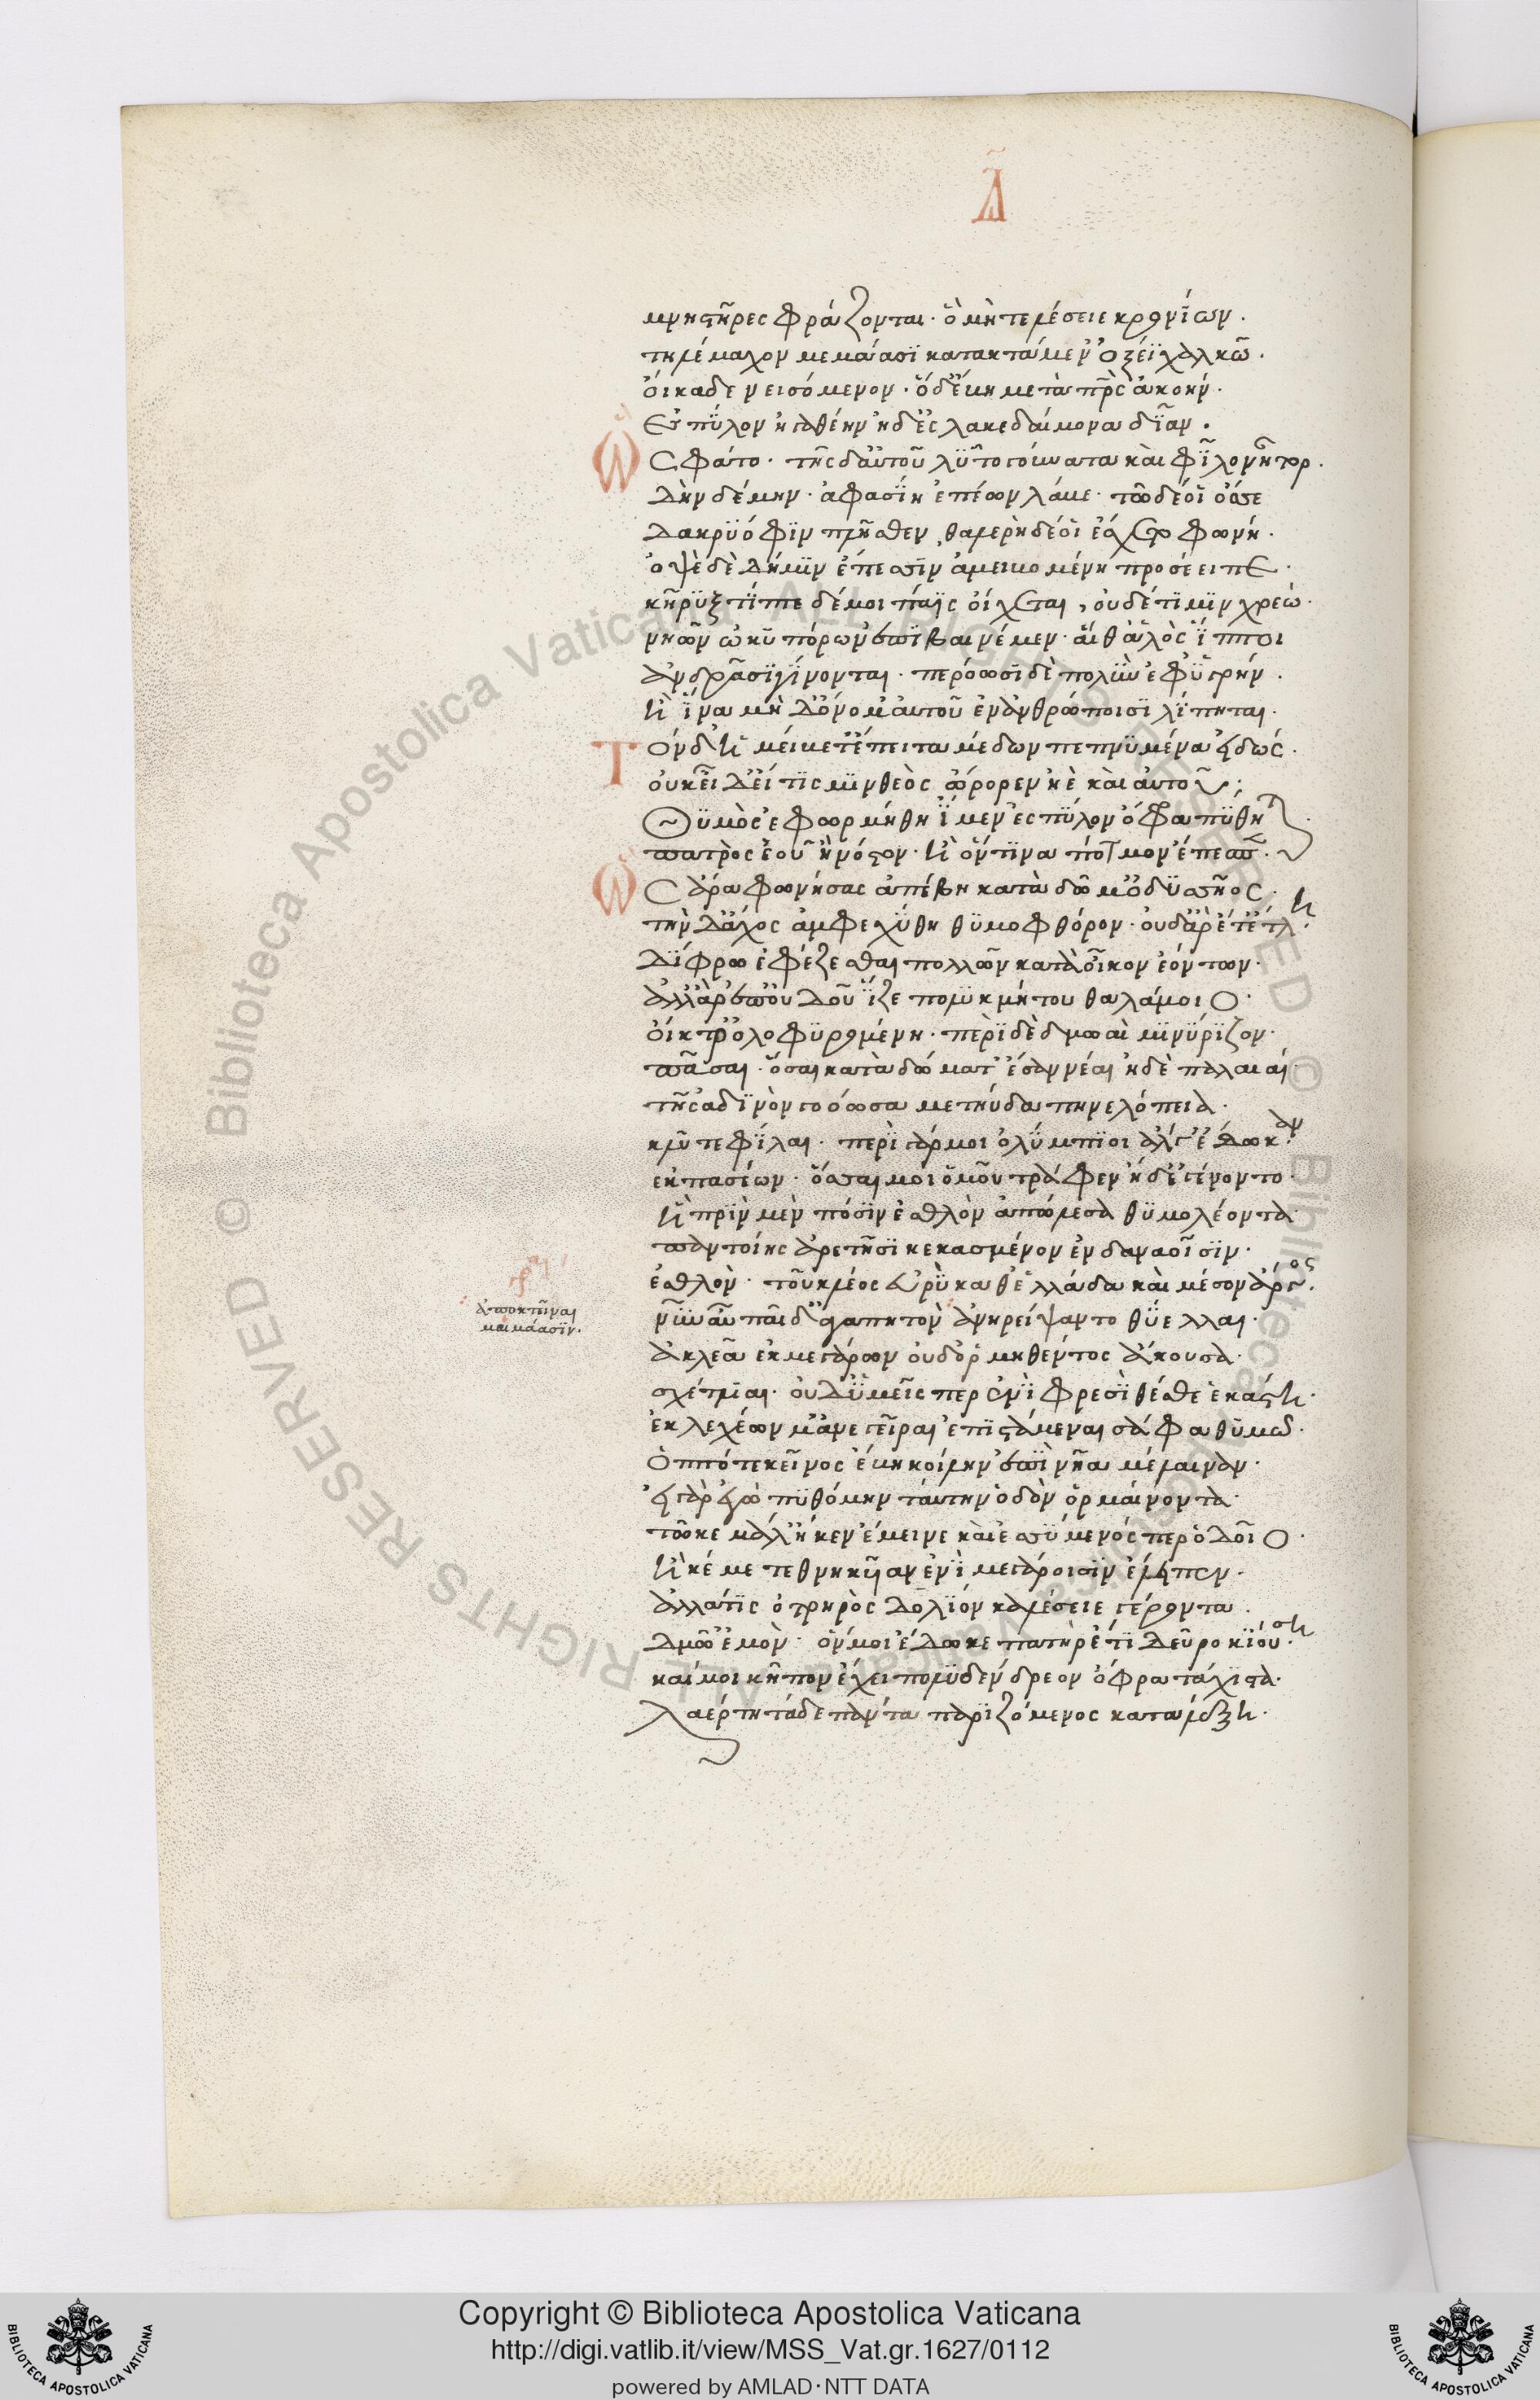 Δ
μνηστῆρες φράζονται· ὃ μὴ τελέσειε κρονίων·
τηλέμαχον μεμάασι κατακτάμεν ὀξέϊ χαλκῶ·
οἴκαδε νεισόμενον· ὁ δ' ἔβη μετὰ πρὸς ἀκουὴν·
ἐς πύλον ἠγαθέην ἠδ' ἐς λακεδαίμονα δῖαν·
ὣς φάτο· τῆς δ' αὐτοῦ λύτο γούνατα καὶ φίλον ἦτορ·
δὴν δέ μιν ἀφασίη ἐπέων λάβε· τὼ δέ οἱ ὄσσε
δακρυόφιν πλῆσθεν, θαλερὴ δέ οἱ ἔσχετο φωνή·
ὀψὲ δὲ δή μιν ἔπεσσιν ἀμειβομένη προσέειπε·
κῆρυξ τίπτε δέ μοι πάϊς οἴχεται, οὐδέ τί μιν χρεὼ·
νηῶν ὠκυπόρων ἐπιβαινέμεν· αἵθ' ἁλὸς ἵπποι
ἀνδράσι γίνονται· περόωσι δὲ πουλὺν ἐφ' ὑγρήν·
ἦ ἵνα μὴ δ' ὄνομ' αὐτοῦ ἐν ἀνθρώποισι λίπηται·
τὸν δ' ἠμείβετ' ἔπειτα μέδων πεπνυμένα εἰδώς·
οὐκ οἶδ' εἴ τίς μιν θεὸς ὤρορεν ἠὲ καὶ αὐτοῦ;
θυμὸς ἐφωρμήθη ἴμεν ἐς πύλον ὄφρα πύθηται
πατρὸς ἑοῦ ἢ νόστον· ἢ ὅντινα πότμον ἐπέσπεν·
ὣς ἄρα φωνήσας ἀπέβη κατὰ δῶμ' ὀδυσῆος·
τὴν δ' ἄχος ἀμφεχύθη θυμοφθόρον· οὐδ' ἄρ' ἔτ' ἔτλη·
δίφρω ἐφέζεσθαι πολλῶν κατὰ οἶκον ἐόντων·
ἀλλ' ἄρ' ἐπ' οὐδοῦ ἷζε πολυκμήτου θαλάμοιο·
οἴκτρ' ὀλοφυρομένη· περὶ δὲ δμωαὶ μινύριζον·
πᾶσαι· ὅσαι κατὰ δώματ' ἔσαν νέαι ἠδὲ παλαιαί·
τῆς ἀδινὸν γοόωσα μετηύδα πηνελόπεια·
κλῦτε φίλαι· περὶ γάρ μοι ὀλύμπιοι ἄλγε' ἔδωκαν·
ἐκ πασέων· ὅσσαι μοι ὁμοῦ τράφεν ἠδ' ἐγένοντο·
ἣ πρὶν μὲν πόσιν ἐσθλὸν ἀπώλεσα θυμολέοντα·
παντοίης ἀρετῆσι κεκασμένον ἐν δαναοῖσιν·
ἐσθλὸν· τοῦ κλέος εὐρὺ καθ' ἑλλάδα καὶ μέσον ἄργος·
νῦν αὖ παῖδ' ἀγαπητὸν ἀνηρείψαντο θύελλαι·
ἀκλέα ἐκ μεγάρων οὐδ' ὁρμηθέντος ἄκουσα·
σχέτλιαι· οὐδ' ὑμεῖς περ ἐνὶ φρεσὶ θέσθε ἑκάστη·
ἐκ λεχέων μ' ἀνεγεῖραι ἐπιστάμεναι σάφα θυμῶ·
ὁππότε κεῖνος ἔβη κοίλην ἐπὶ νῆα μέλαιναν·
εἰ γὰρ ἐγὼ πυθόμην ταύτην ὁδὸν ὁρμαίνοντα·
τῶ κε μάλ' ἤ κεν ἔμεινε καὶ ἐσσύμενός περ ὁδοῖο·
ἤ κέ με τεθνηκυῖαν ἐνὶ μεγάροισιν ἔλειπεν·
ἀλλά τις ὀτρηρὸς δολίον καλέσειε γέροντα·
δμῶ' ἐμὸν· ὅν μοι ἔδωκε πατὴρ ἔτι δεῦρο κιούση·
καί μοι κῆπον ἔχει πολυδένδρεον ὄφρα τάχιστα·
λαέρτη τάδε πάντα παριζόμενος καταλέξη·
ἀποκτεῖναι
μαιμάασιν·
Copyright © Biblioteca Apostolica Vaticana
http://digi.vatlib.it/view/MSS_Vat.gr.1627/0112
powered by AMLAD·NTT DATA
BIBLIOTECA APOSTOLICA VATICANA
BIBLIOTECA APOSTOLICA VATICANA
© Biblioteca Apostolica Vaticana ALL RIGHTS RESERVED © Biblioteca Apostolica Vaticana ALL RIGHTS RESERVED